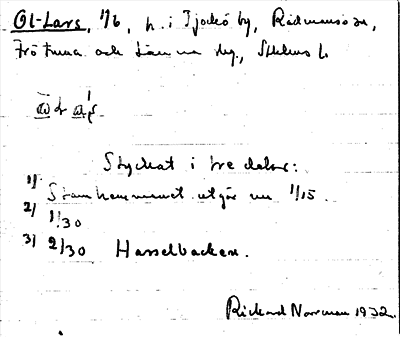 Ol-Lars, 1/6, h. i Tjockö by, Rådmansö sn,
Frötuna och Länna hg., Sthlms l.
Styckat i tre delar:
1/ Stamhemmanet utgör nu 1/15.
2/ 1/30
3/ 2/30 Hasselbacken.
Rickard Norrman 1932.